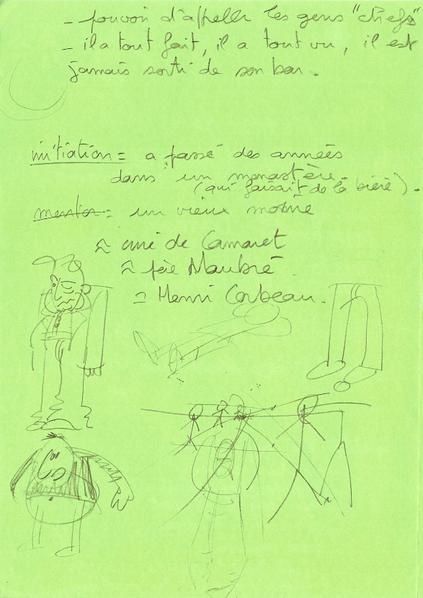 - pouvoir d'appeller les gens "chefs"
- il a tout fait, il a tout vu, il est
jamais sorti de son bar.
initiation = a passé des années
dans un monastère.
(qui faisait de la bière).
mentor = un vieux moine
≈ curé de Camaret
≈ père Maubré
= Henri Corbeau.